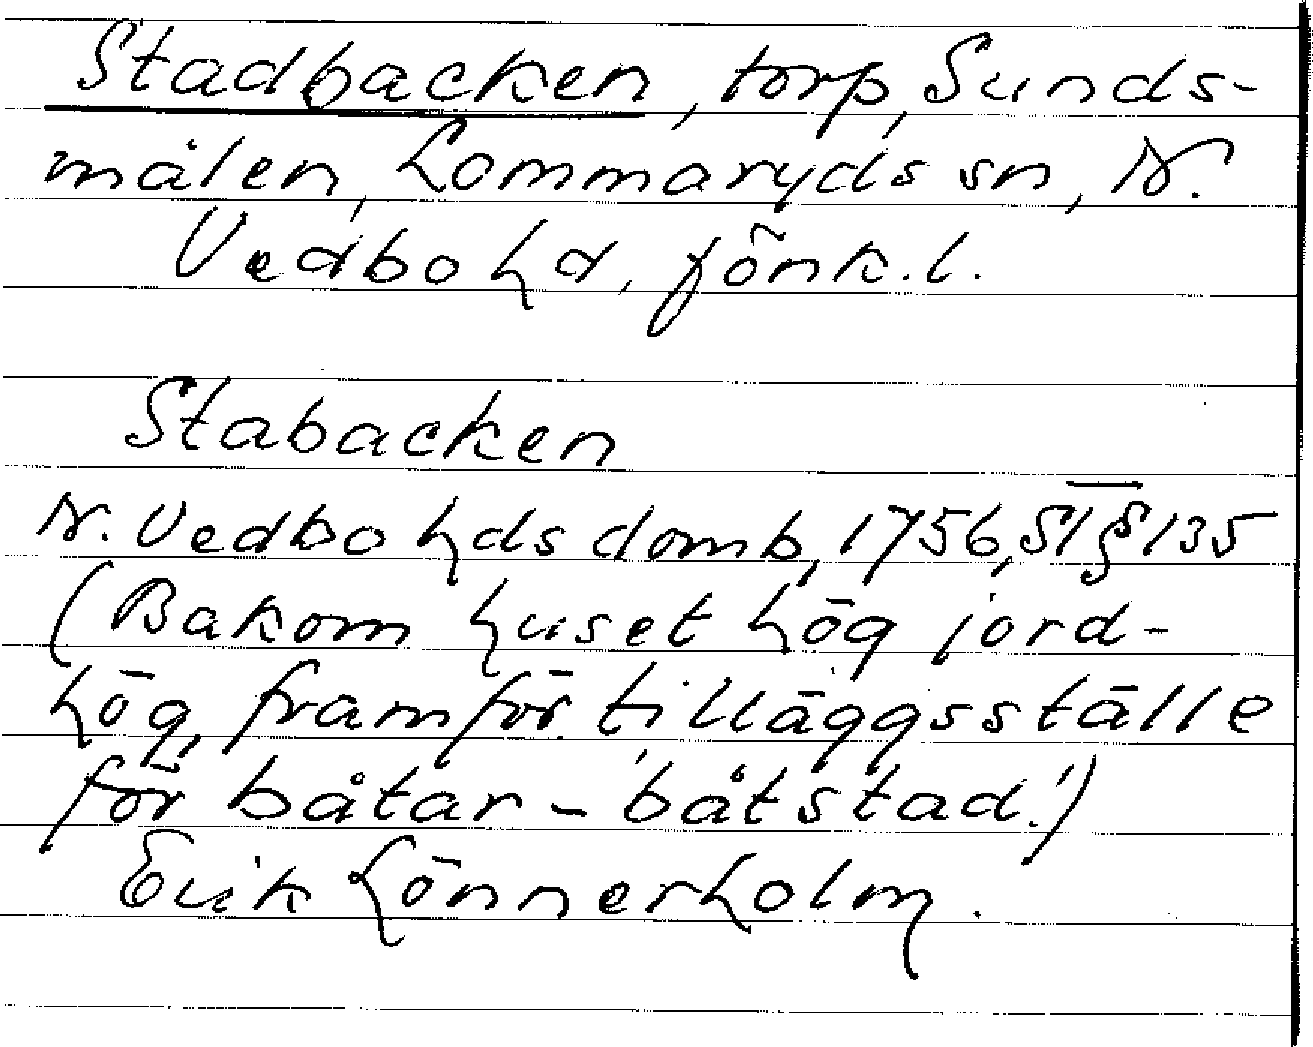 Stadbacken, torp, Sunds-
målen, Lommaryds sn, N.
Vedbo hd, Jönk.l.
Stabacken
N. Vedbo hds domb, 1756, ST § 135
(Bakom huset hög jord-
hög, framför tilläggsställe
för båtar - båtstad!)
Erik Lönnerholm.